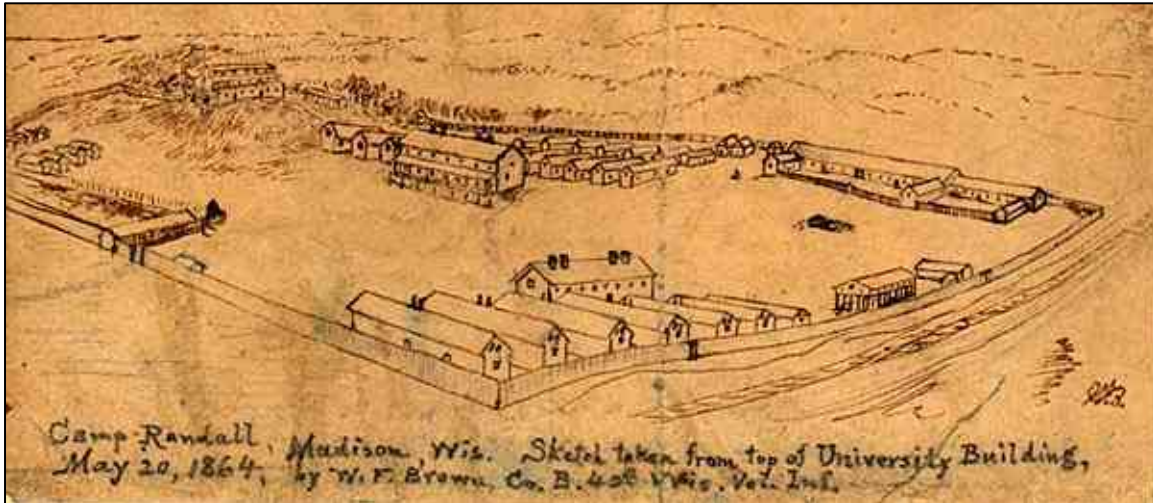 Camp Randall, Madison, Wis. Sketch taken from top of University Building,
May 20, 1864, by W. F. Brown, Co. B. Wis. Vol. Inf.